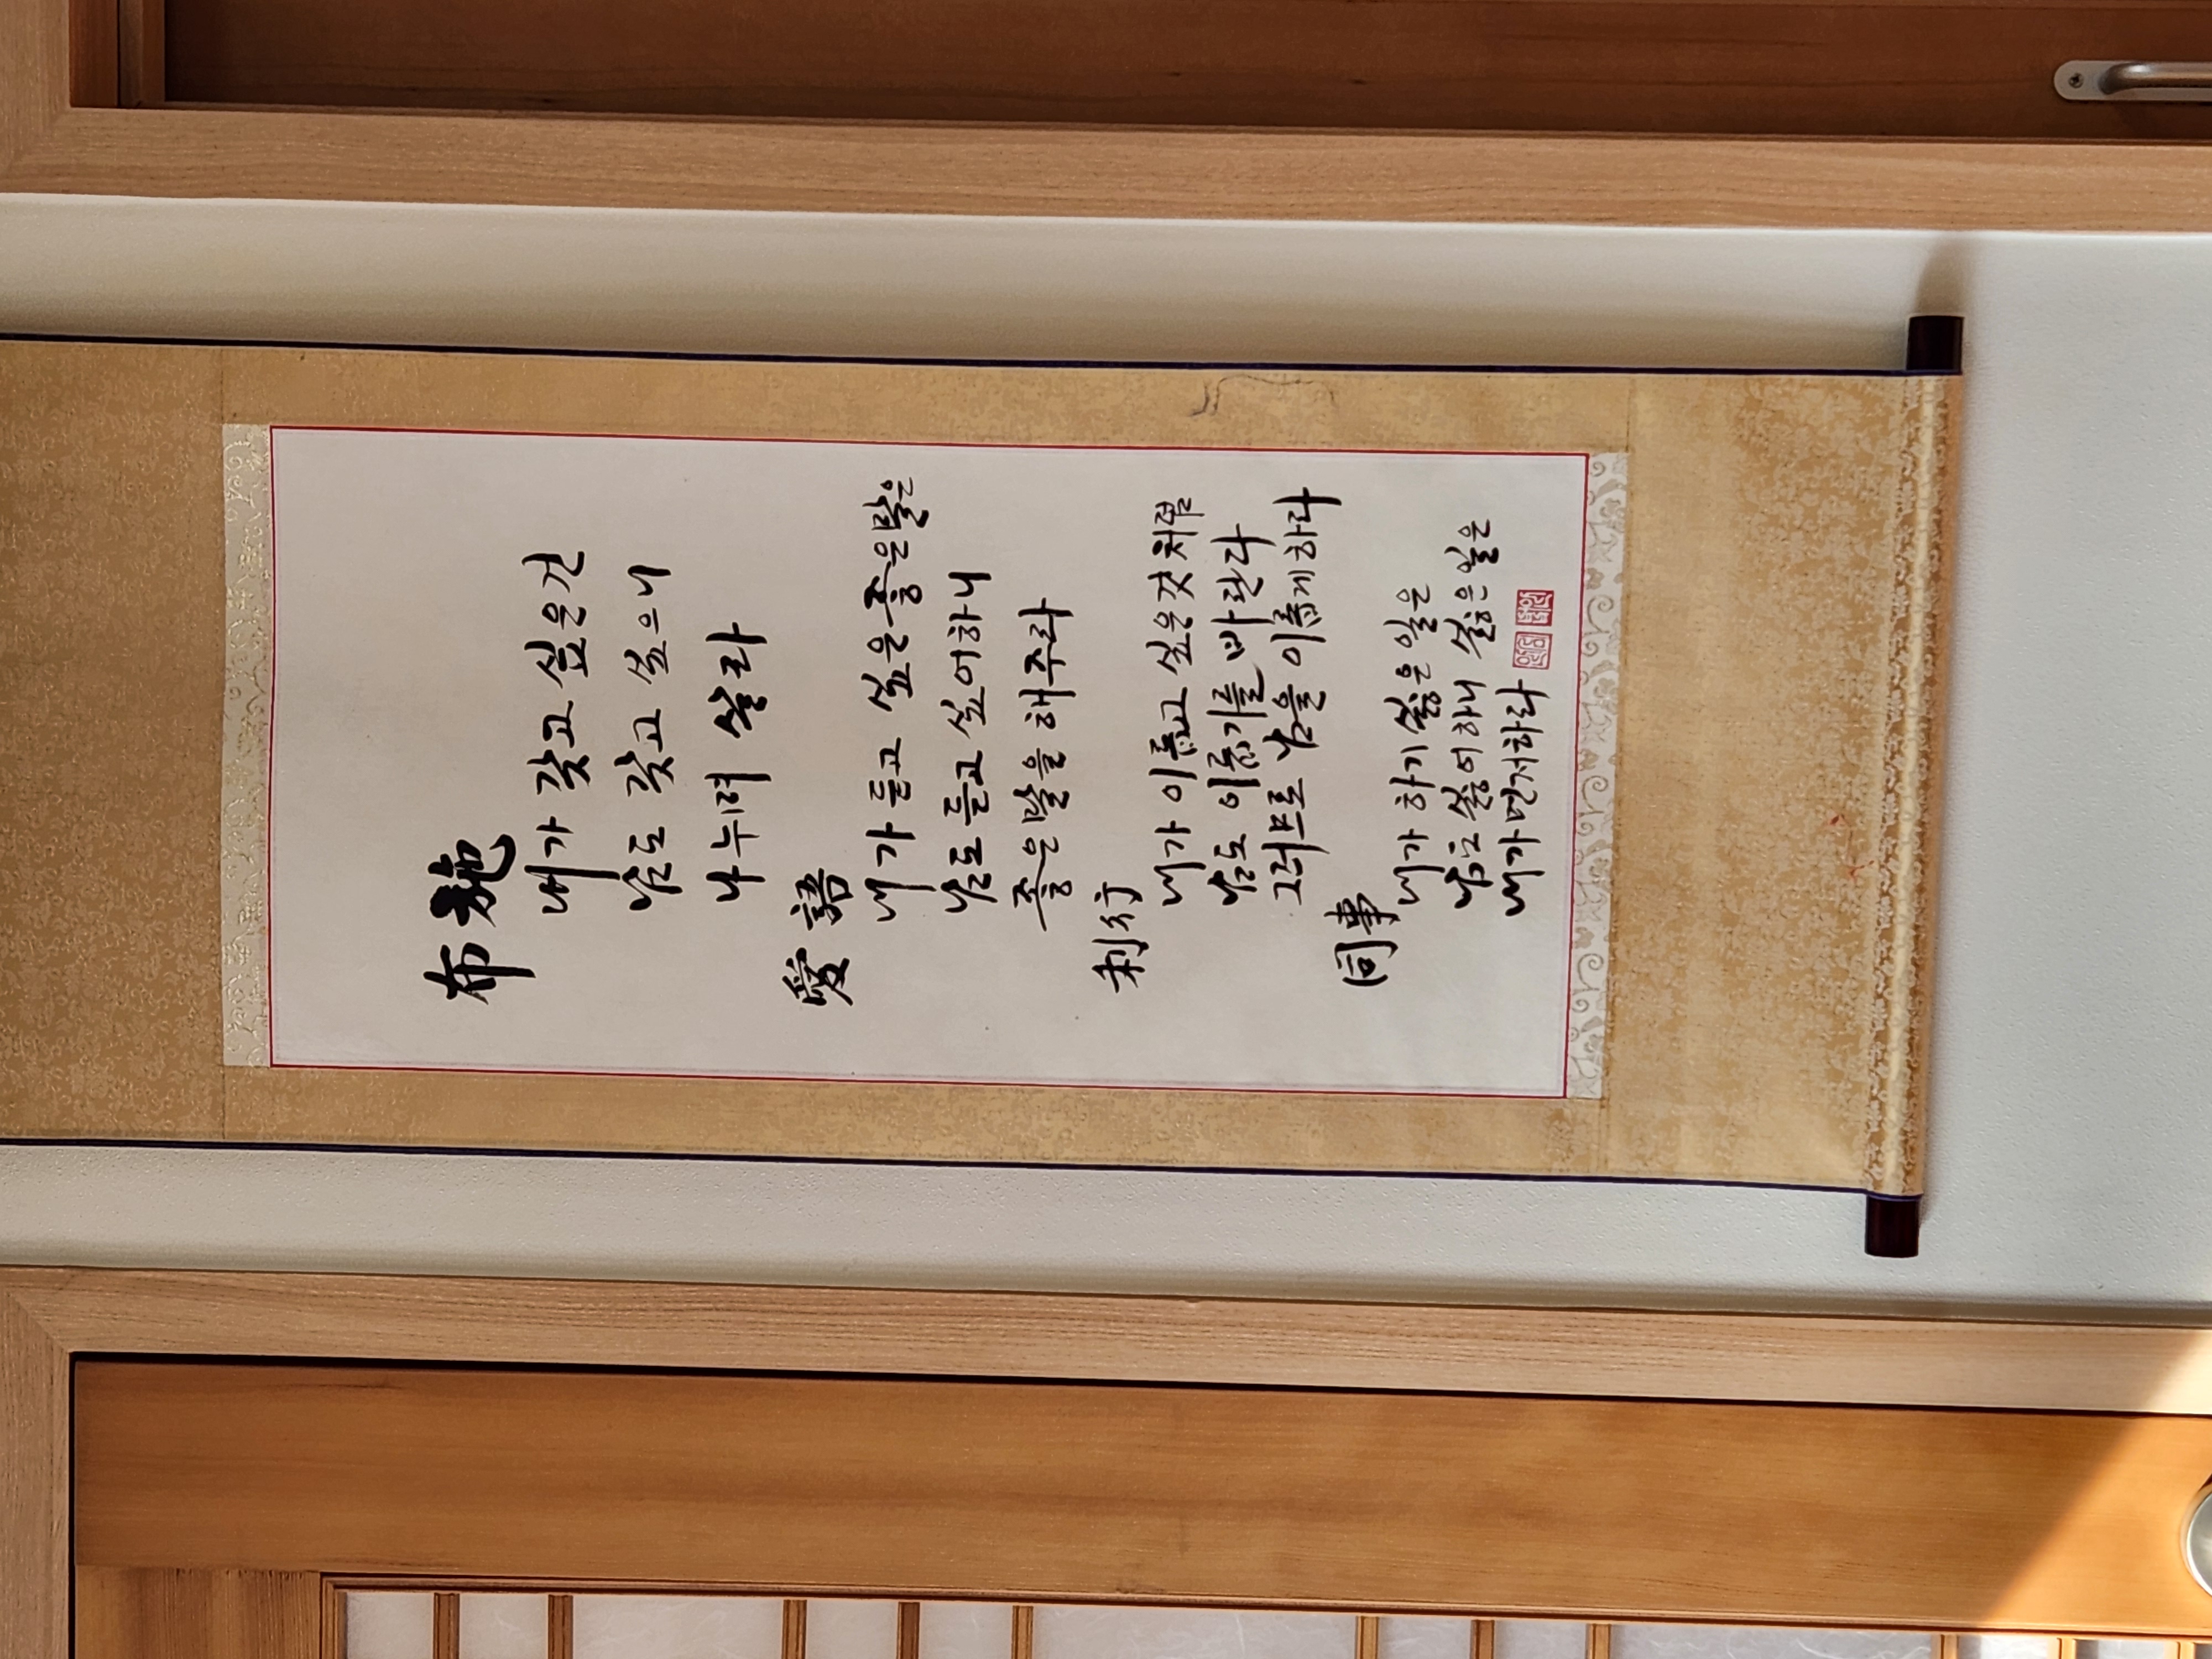 布施
내가 갖고 싶은건
남도 갖고 싶으니
나누며 살라
愛語
내가 듣고 싶은 좋은말은
남도 듣고 싶어하니
좋은말을 해주라
利行
내가 이롭고 싶은것처럼
남도 이롭기를 바란다
그러므로 남을 이롭게하라
同事
내가 하기 싫은 일은
남도 싫어하니 싫은일은
내가먼저하라